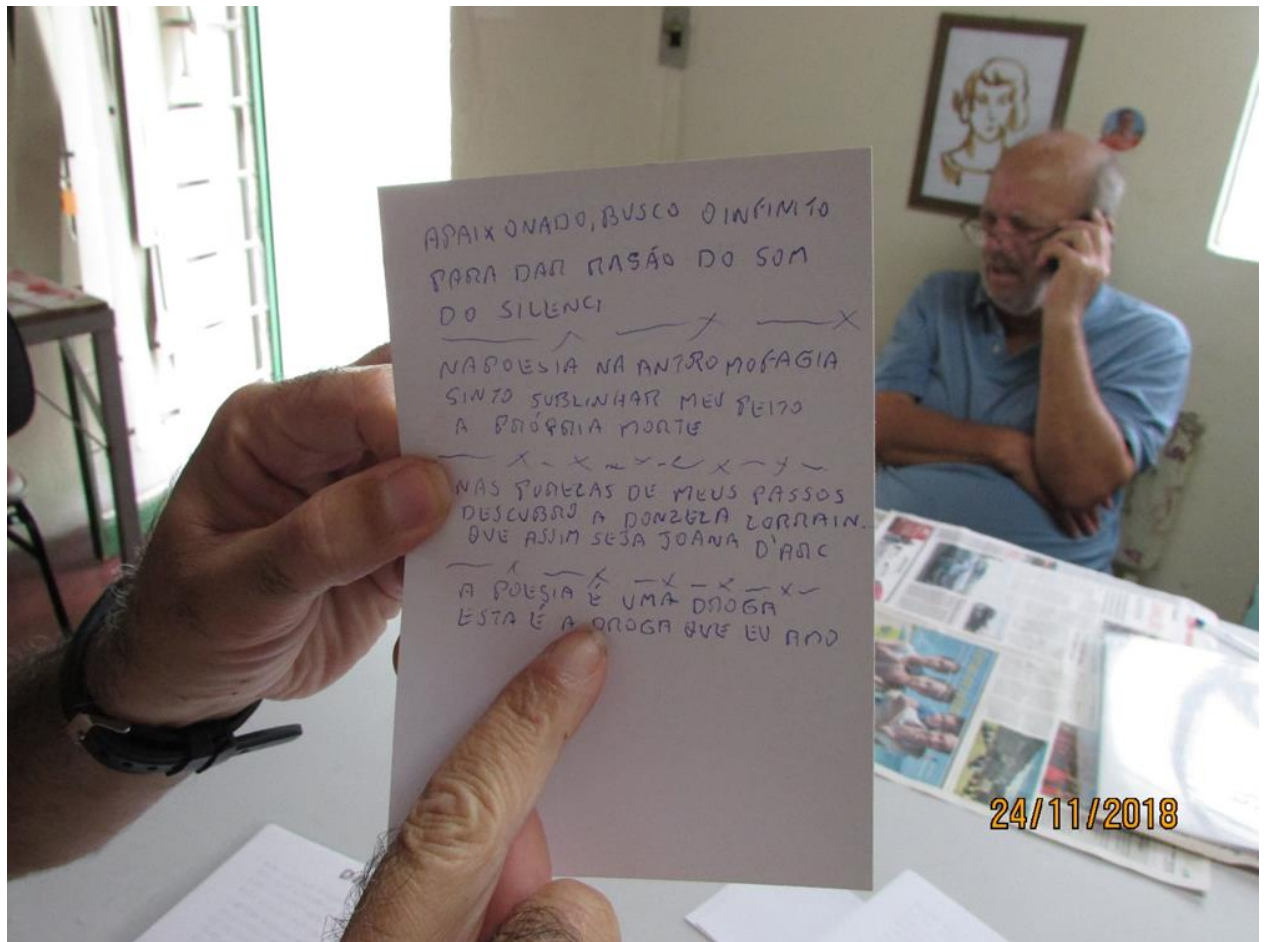 APAIXONADO, BUSCO O INFINITO
PARA DAR RASÃO DO SOM
DO SILENCI
NA POESIA NA ANTROMOFAGIA
SINTO SUBLINHAR MEU PEITO
A PRÓPRIA MORTE
NAS PUREZAS DE MEUS PASSOS
DESCUBRO A DONZELA LORRAIN.
QUE ASSIM SEJA JOANA D'ARC
A POESIA É UMA DROGA
ESTA É A DROGA QUE EU AMO
24/11/2018